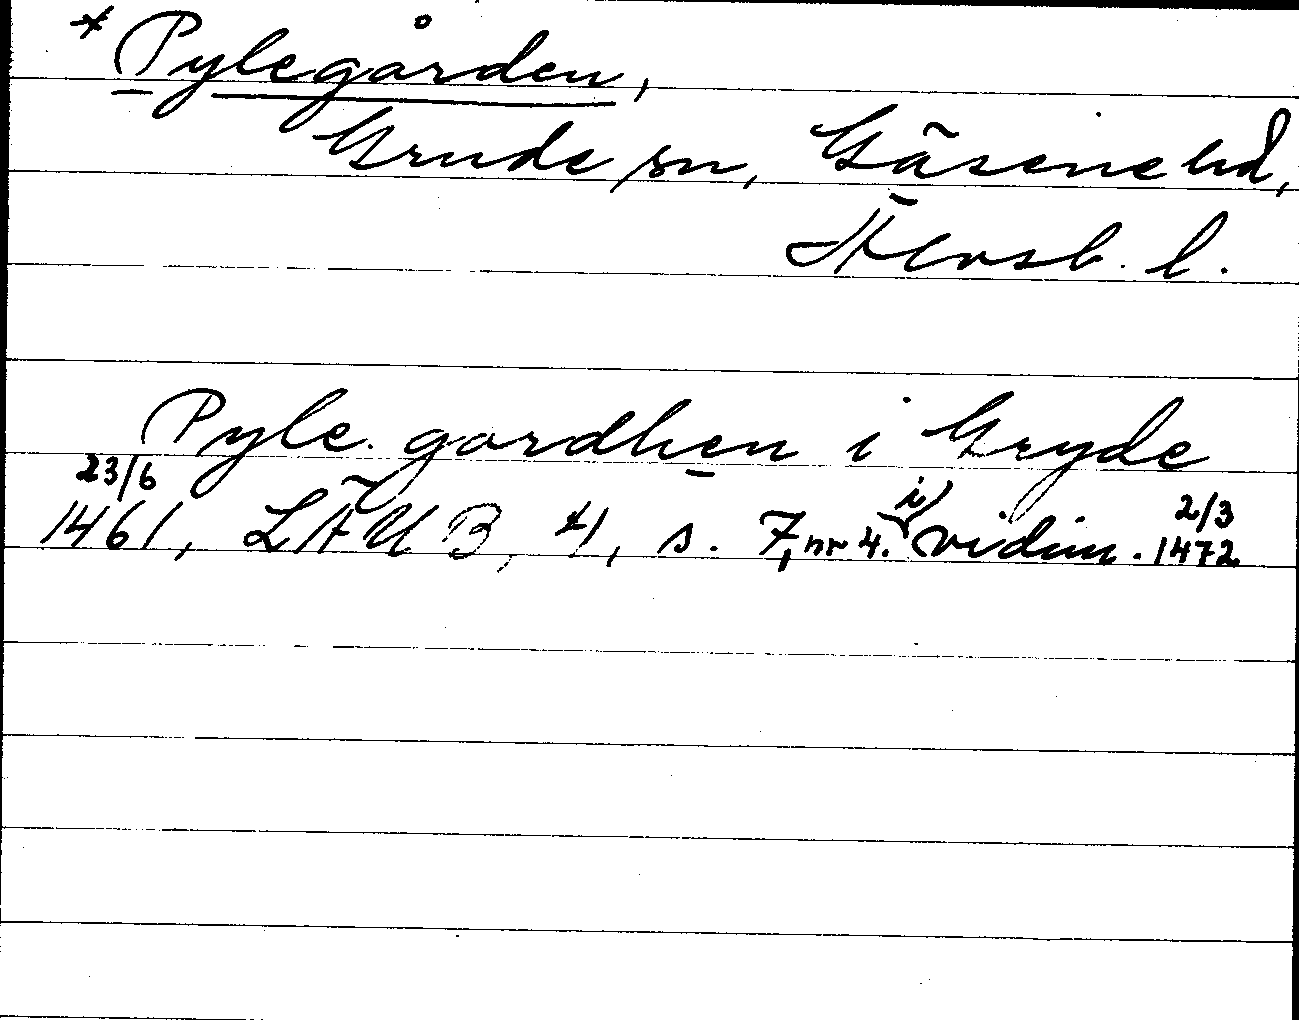 * Pylegården,
Grude sn, Gäsene hd,
Älvsb. l.
Pyle. gardhen i Gryde
23/6 1461, LÄUB, 4, s. 7, nr 4. i vidim. 2/3 1472